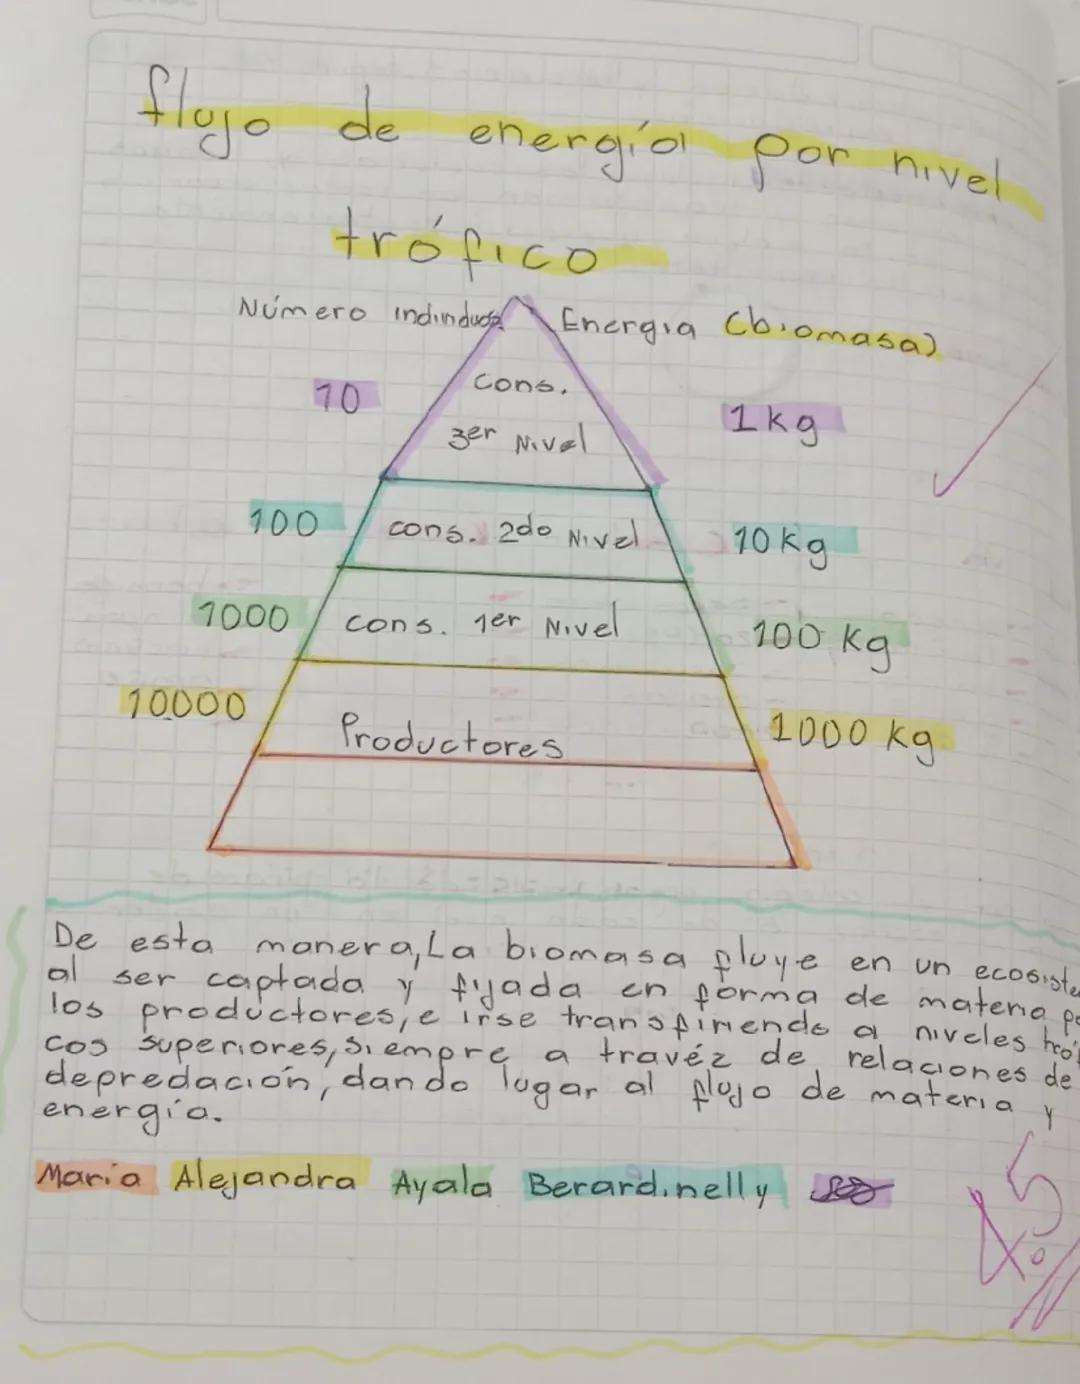 flujo de energía por nivel
trófico
Número Energia (biomasa)
10 Cons. 1kg
3er Nivel
100 cons. 2do Nivel 10kg
1000 cons. 1er Nivel 100 kg
10000 Productores 1000 kg
De esta manera, La biomasa fluye en un ecosiste
al ser captada y fijada en forma de materia
los productores, e irse transfiriendo a niveles tró
cos superiores, siempre a travéz de relaciones de
depredación, dando lugar al flujo de materia y
energía.
María Alejandra Ayala Berardinelly
4.5